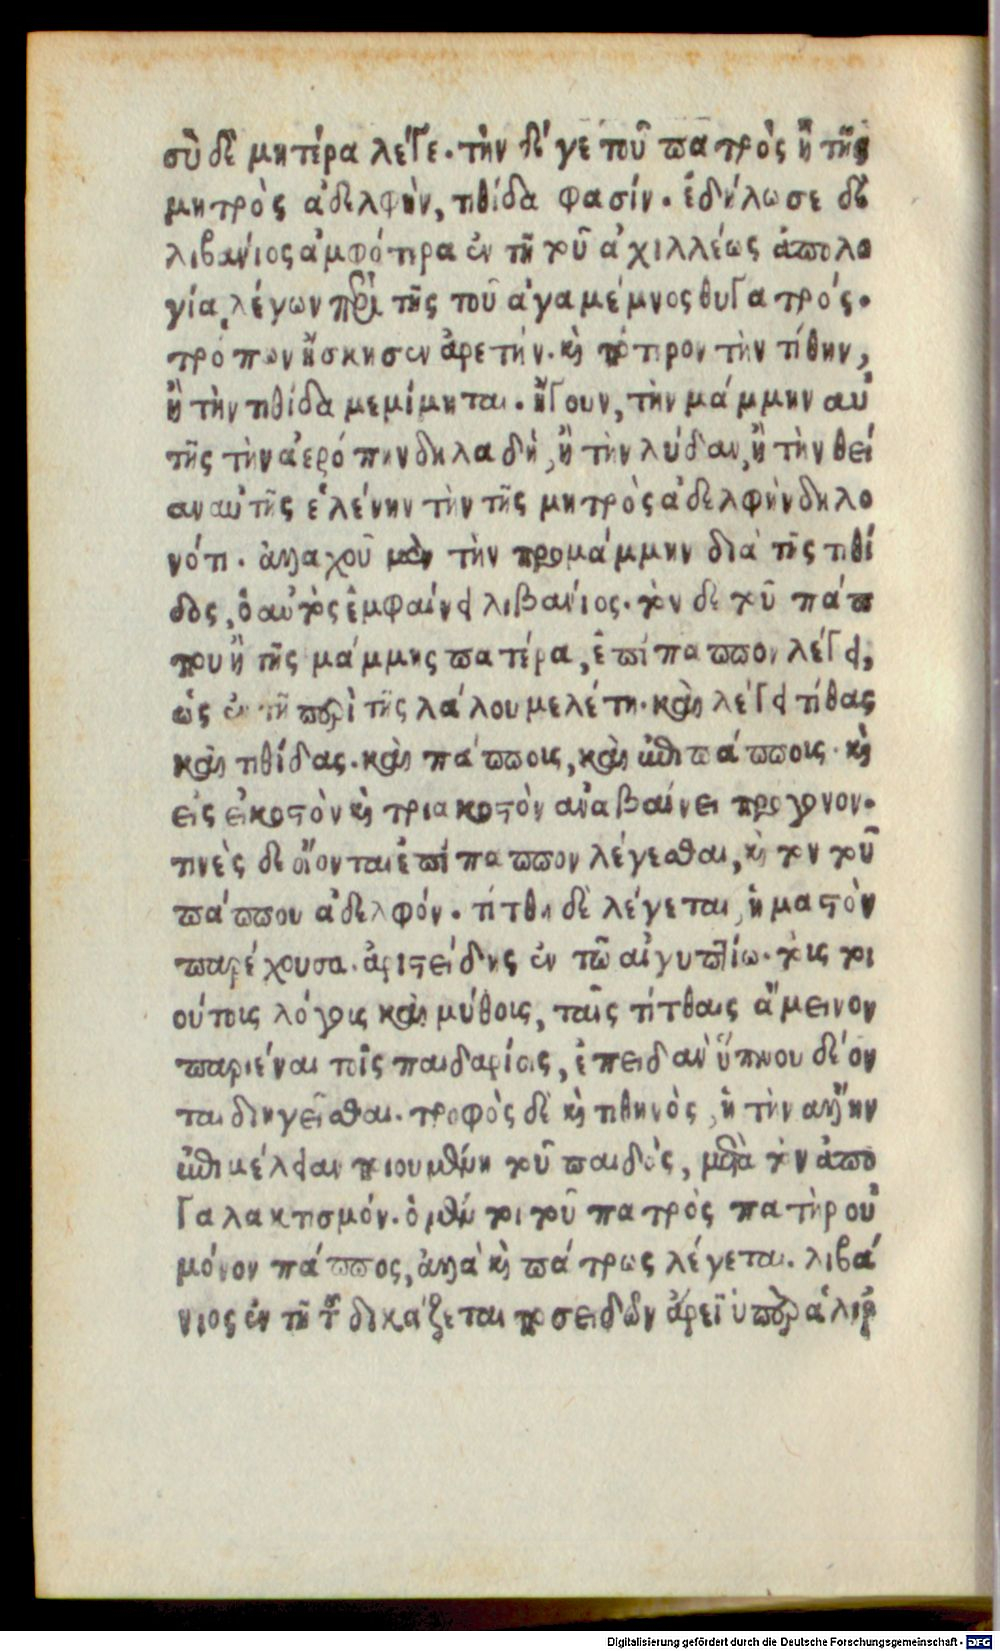 σὺ δὲ μητέρα λέγε. τὴν δέ γε τοῦ πατρὸς ἢ τῆς
μητρὸς ἀδελφὴν, τηθίδα φασίν. ἐδήλωσε δὲ
λιβανιος ἀμφότερα ἐν τῇ τοῦ ἀχιλλέως ἀπολο
γία, λέγων περὶ τῆς τοῦ ἀγαμέμνος θυγατρός.
τρόπων ἤσκησεν ἀρετήν. κὴ πότερον τὴν τίθην,
ἢ τὴν τηθίδα μεμίμηται. ἤγουν, τὴν μάμμην αὐ
τῆς τὴν ἀερόπην δηλαδή, ἢ τὴν λύδαν, ἢ τὴν θεί
αν αὐτῆς ἑλένην τὴν τῆς μητρὸς ἀδελφὴν δηλο
νότι. ἀλλαχοῦ μὲν τὴν προμάμμην διὰ τῆς τηθί
δος, ὁ αὐτὸς ἐμφαίνει λιβανίος. τὸν δὲ τοῦ πάπ
που ἢ τῆς μάμμης πατέρα, ἐπίπαππον λέγει,
ὡς ἐν τῇ περὶ τῆς λάλου μελέτη. καὶ λέγει τίθας
καὶ τηθίδας. καὶ πάπποις, καὶ ἐπιπάπποις. κὴ
εἰς εἰκοστὸν κὴ τριακοστὸν ἀναβαίνει πρόγονον.
τινὲς δὲ οἴονται ἐπίπαππον λέγεσθαι, κὴ τὸν τοῦ
πάππου ἀδελφόν. τίτθη δὲ λέγεται, ἡ μαστὸν
παρέχουσα. ἀριστείδης ἐν τῶ αἰγυπτίω. τοῖς τοι
ούτοις λόγοις καὶ μύθοις, ταῖς τίτθαις ἄμεινον
παριέναι τοῖς παιδαρίοις, ἐπειδὰν ὕπνου δέον
ται διηγεῖσθαι. τροφὸς δὲ κὴ τιθηνὸς, ἡ τὴν ἄλλην
ἐπιμέλειαν ποιουμένη τοῦ παιδὸς, μετὰ τὸν ἀπο
γαλακτισμόν. ὁ μέν τοι τοῦ πατρὸς πατὴρ οὐ
μόνον πάππος, ἀλλὰ κὴ πάτρως λέγεται. λιβά
νιος ἐν τῇ δικάζεται ποσειδῶν ἄρεϊ ὑπὲρ ἁλιρ
Digitalisierung gefördert durch die Deutsche Forschungsgemeinschaft - DFG